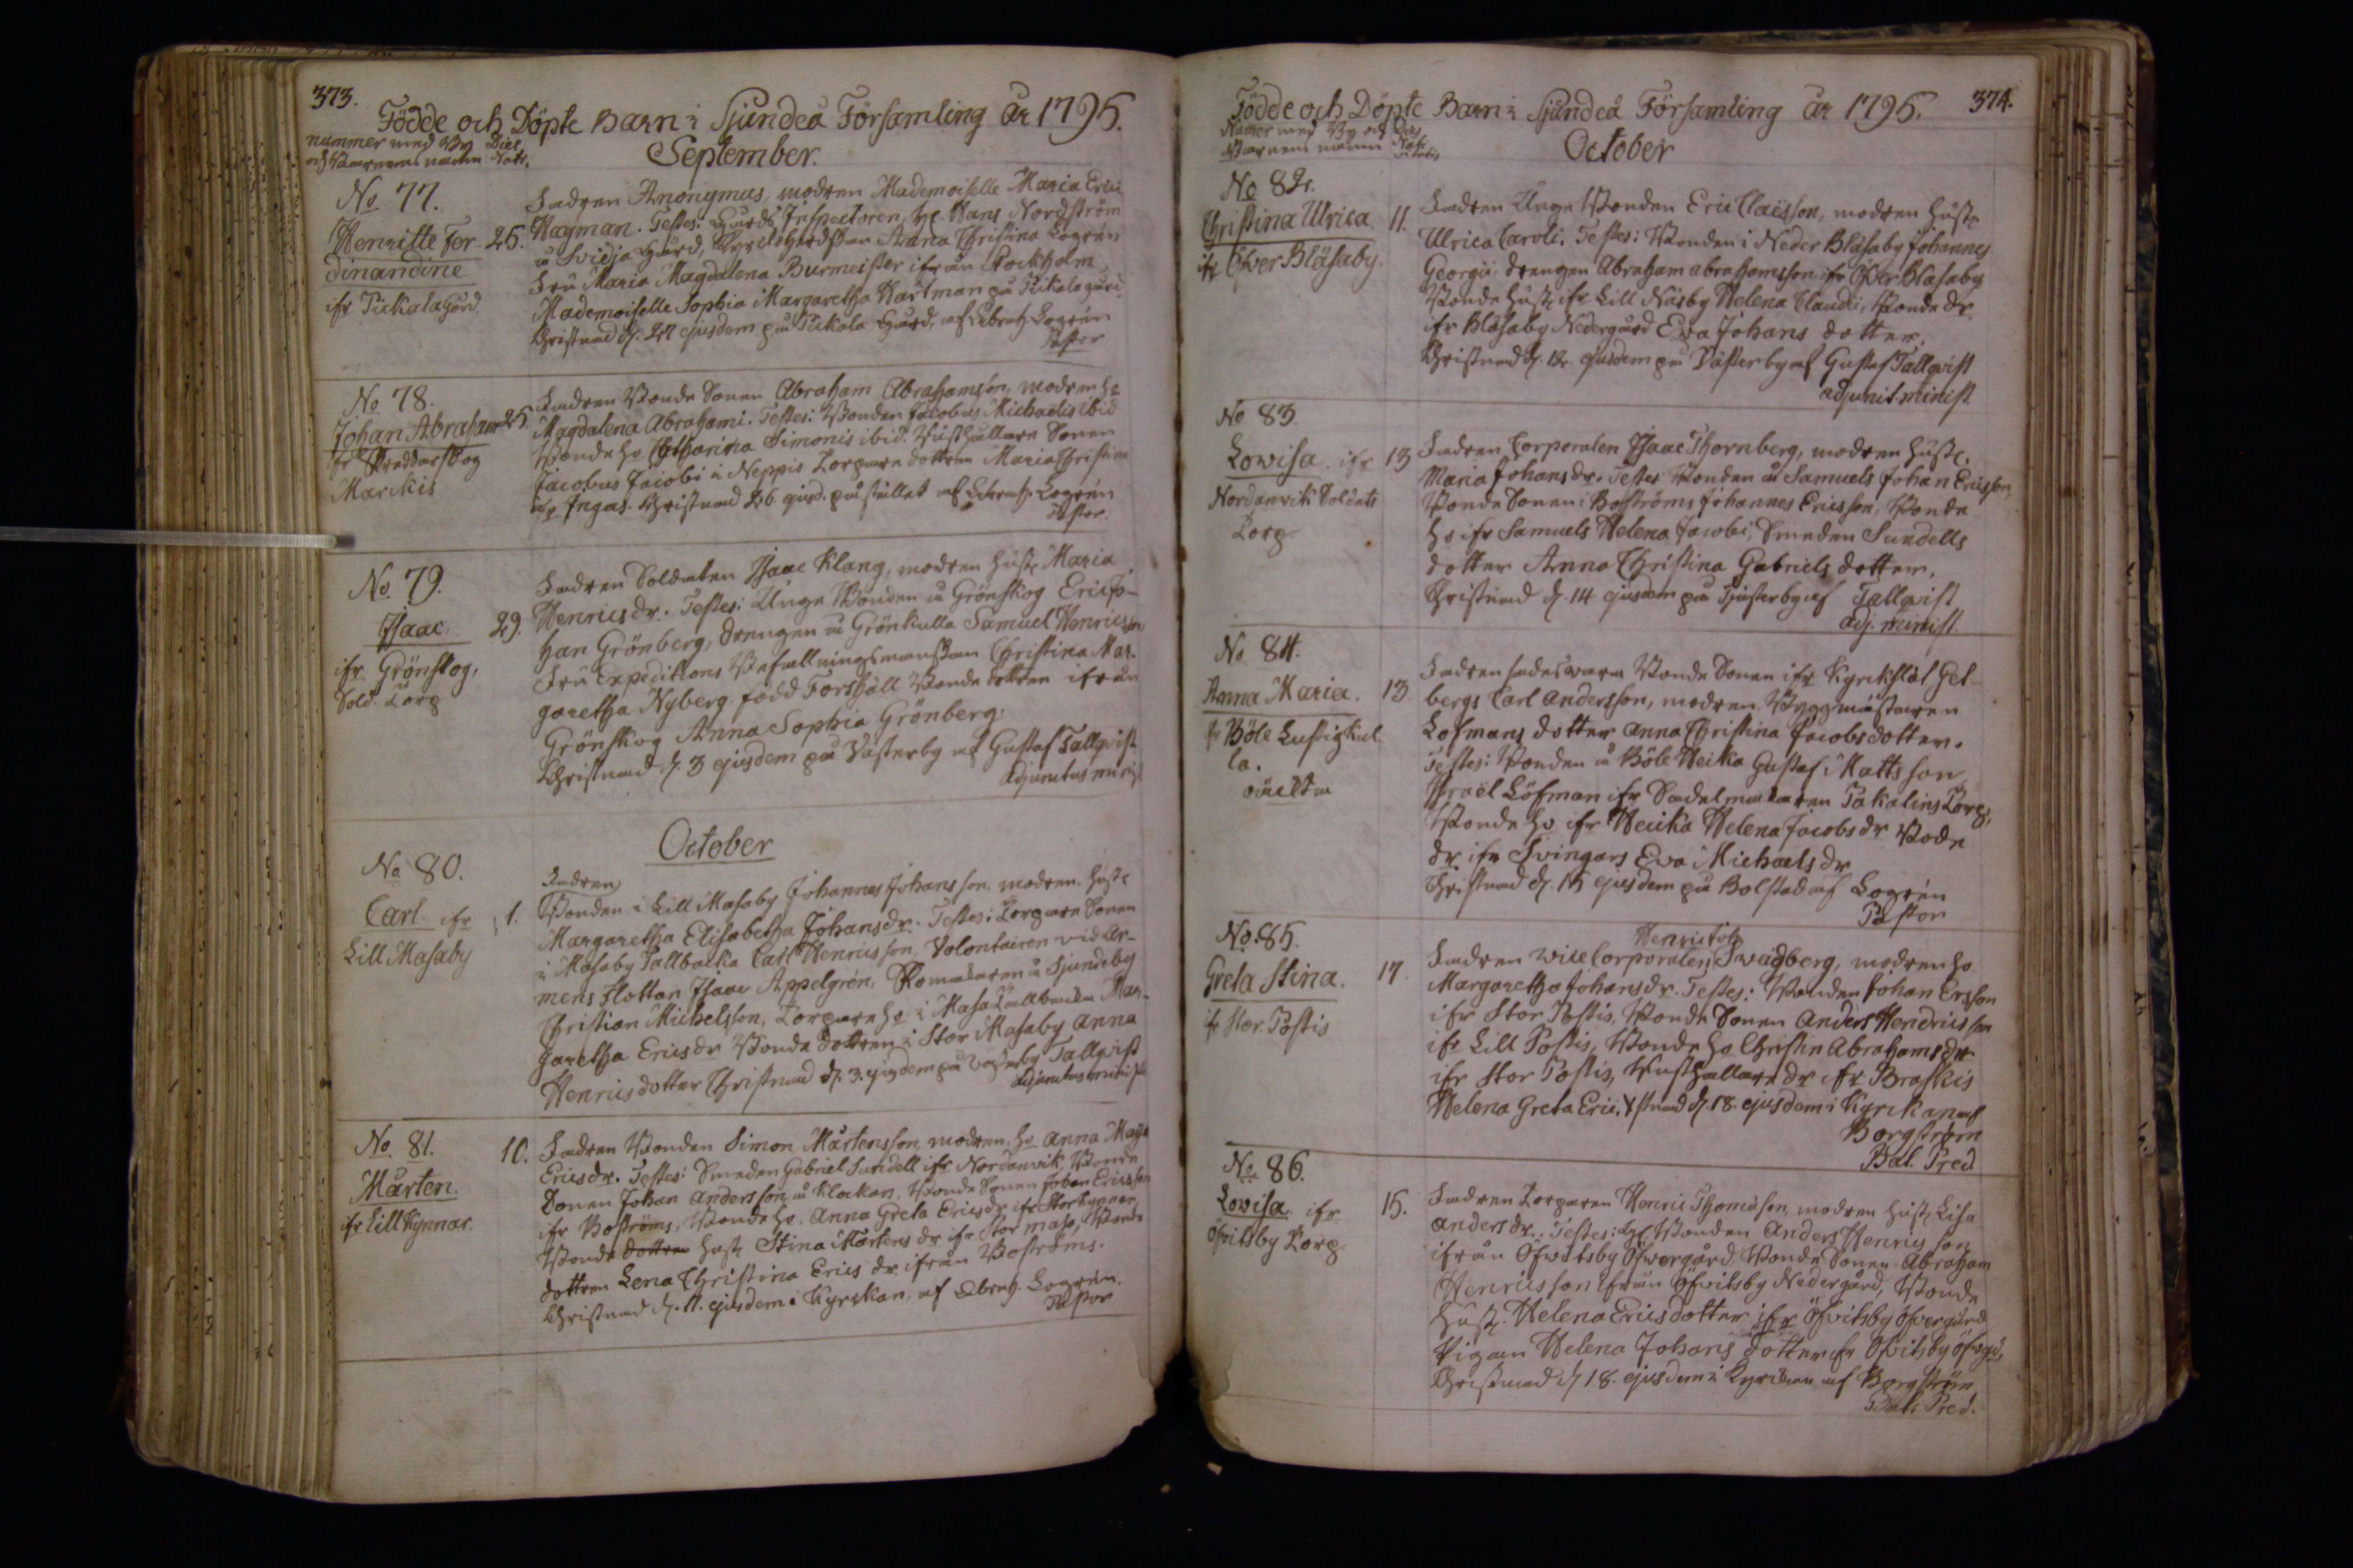 373.
Födde och Döpte Barn i Sjundeå Församling år 1795.
nummer med By Dies
och Barnens namn Nat.
September.
No 77.
Henritte Fer- 25.
dinandine
ifr Pickala Gård
Fadren Anonymus, modren Mademoiselle Maria Erici
Hagman. Testes: Gårds Inspectoren, Hr Hans Nordström
å Svidja Gård, Anna Christina Logrén
Fru Maria Magdalena Burmeister ifrån Rockholm
Mademoiselle Sophia Margaretha Hartman på Pikala gård
Christnad d. 27 ejusdem på Pickala Gård, af Abrah. Logrén
Pastor
No 78.
Johan Abraham 25.
ifr Skreddarskog
Marckis
Fadren Bonde Sonen Abraham Abrahamsson, modren ho
Magdalena Abrahami. Testes: Bonden Jacobus Michaelis ibid
Bonde ho Catharina Simonis ibid. Rusthållare Sonen
Jacobus Jacobi i Neppis Torpare dottren Maria Christina
ifr Ingas. Christnad 26. ejusd. på stället af Abrah. Logrén
Pastor.
No. 79.
Isaac. 29.
ifr Grönskog,
Sold. Torp
Fadren Soldaten Isaac Klang, modren hustr Maria
Henricsdr. Testes: Unge Bonden å Grönskog Eric Jo-
han Grönberg, drengen å Grönkulla Samuel Henricsson
Fru Expeditions Befallningsmanskan Christina Mar-
garetha Nyberg född Forshäll Bonde dottren ifrån
Grönskog Anna Sophia Grönberg.
Christnad d. 3 ejusdem på Västerby af Gustaf Tallqvist
Adjunctus minist
October
No 80.
Carl ifr 1.
Lill Masaby
Fadren
Bonden i Lill Masaby Johannes Johansson, modren hustr
Margaretha Elisabetha Johansdr. Testes: Torpare Sonen
i Masaby Tallbacka Carl Henricsson, Volontairen vid Ar-
mens flottan Isaac Appelgrén, Skomakaren å Sjundeby
Christian Michelsson, Torpare ho i Masa Tallbacka Mar-
garetha Ericsdr Bonde dottren i Stor Masaby Anna
Henricsdotter Christnad d. 3. ejusdem på Västerby Tallqvist
Adjunctus minist
No 81.
Mårten. 10.
ifr Lill Kynnar.
Fadren Bonden Simon Mårtensson, modren ho Anna Maja
Ericsdr. Testes: Smeden Gabriel Sundell ifr Nordanvik, Bonde
Sonen Johan Andersson å Klockan, Bonde Sonen Johan Ericsson
ifr Boströms, Bonde ho. Anna Greta Ericsdr ifr Storkynnar,
Bonde dottren hustr Stina Mårtens dr ifr Stor masa, Bonde
dottren Lena Christina Erics dr. ifrån Boströms.
Christnad d. 11. ejusdem i Kyrckan, af Abrah. Logrén.
Pastor
374.
Födde och Döpte Barn i Sjundeå Församling år 1795.
Numer med By och Dies
Barnens namn Nati-
vitatis
October
No 82.
Christina Ulrica 11.
ifr Öfver Bläsaby.
Fadren Unge Bonden Eric Claësson, modren hustr
Ulrica Caroli. Testes: Bonden i Neder Bläsaby Johannes
Georgii drengen Abraham Abrahamsson ifr Öfver Bläsaby
Bonde hustr ifr Lill Näsby Helena Claudi, Bonde dr.
ifr Bläsaby Nedergård Eva Johans dotter.
Christnad d. 12. ejusdem på Västerby af Gustaf Tallqvist
adjunct. minist
No 83.
Lowisa. ifr 13
Nordanvik Soldats
Torp.
Fadren Corporalen Isaac Thornberg, modren hustr.
Maria Johansdr. Testes Bonden å Samuels Johan Ericsson,
Bonde Sonen i Boströms Johannes Ericsson, Bonde
ho ifr Samuels Helena Jacobi, Smeden Sundells
dotter Anna Christina Gabriels dotter.
Christnad d. 14 ejusdem på Västerby af Tallqvist
adj. minist
No 84.
Anna Maria. 13
fr Böle Lustigkul
la.
oäckta
Fadren Bonde Sonen ifr Kyrckslät Gel-
bergs Carl Andersson, modren Byggmästaren
Lofmans dotter Anna Christina Jacobsdotter.
Testes: Bonden å Böle Heikka Gustaf Mattsson
Israël Löfman ifr Sadelmakaren Pakalins Torp,
Bonde ho ifr Heicka Helena Jacobs dr Bode
dr ifr Svingars Eva Michaels dr
Christnad d. 15 ejusdem på Bolstad af Logrén
Pastor
No. 85.
Greta Stina. 17
ifr Stor Postis
Henric
Fadren vice Corporalen Swagberg, modren ho
Margaretha Johansdr. Testes: Bonden Johan Ersson
ifr Stor Postis, Bonde Sonen Anders Hendricsson
ifr Lill Postis, Bonde ho Christin Abrahamsdr
ifr Stor Postis, Rusthållare dr ifr Braskis
Helena Greta Erici. Xstnad d. 18. ejusdem i Kyrckan af
Borgström
Bat. Pred
No. 86.
Lowisa ifr 15.
Öfvitsby Torp
Fadren Torparen Henric Thomasson, modren hustr Lisa
Andersdr. Testes: Bonden Anders Henricsson
ifrån Öfwitsby Öfwergård Bonde Sonen Abraham
Henricsson ifrån Öfvitsby Nedergård, Bonde
hustr. Helena Ericsdotter ifr Öfvitsby öfvergård
Pigan Helena Johans dotter ifr Öfvitsby öfvgd,
Christnad d 18. ejusdem i Kyrckan af Borgström
Bat. Pred.